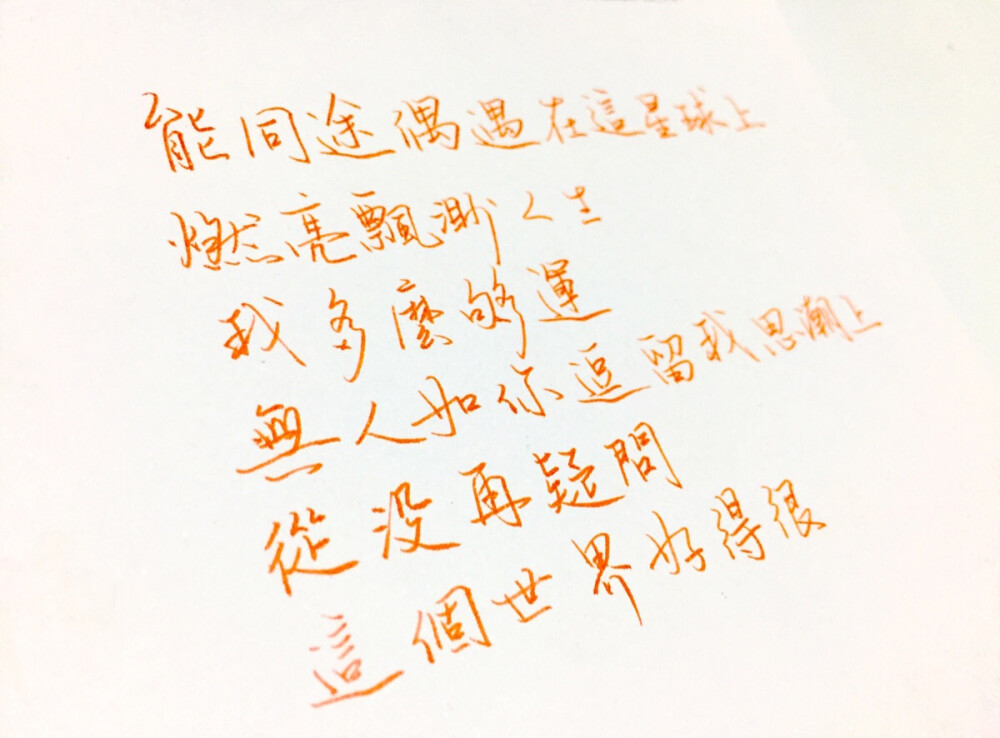 能同途偶遇在這星球上
燃亮飄渺人生
我多麼够運
無人如你逗留我思潮上
從没再疑問
這個世界好得很